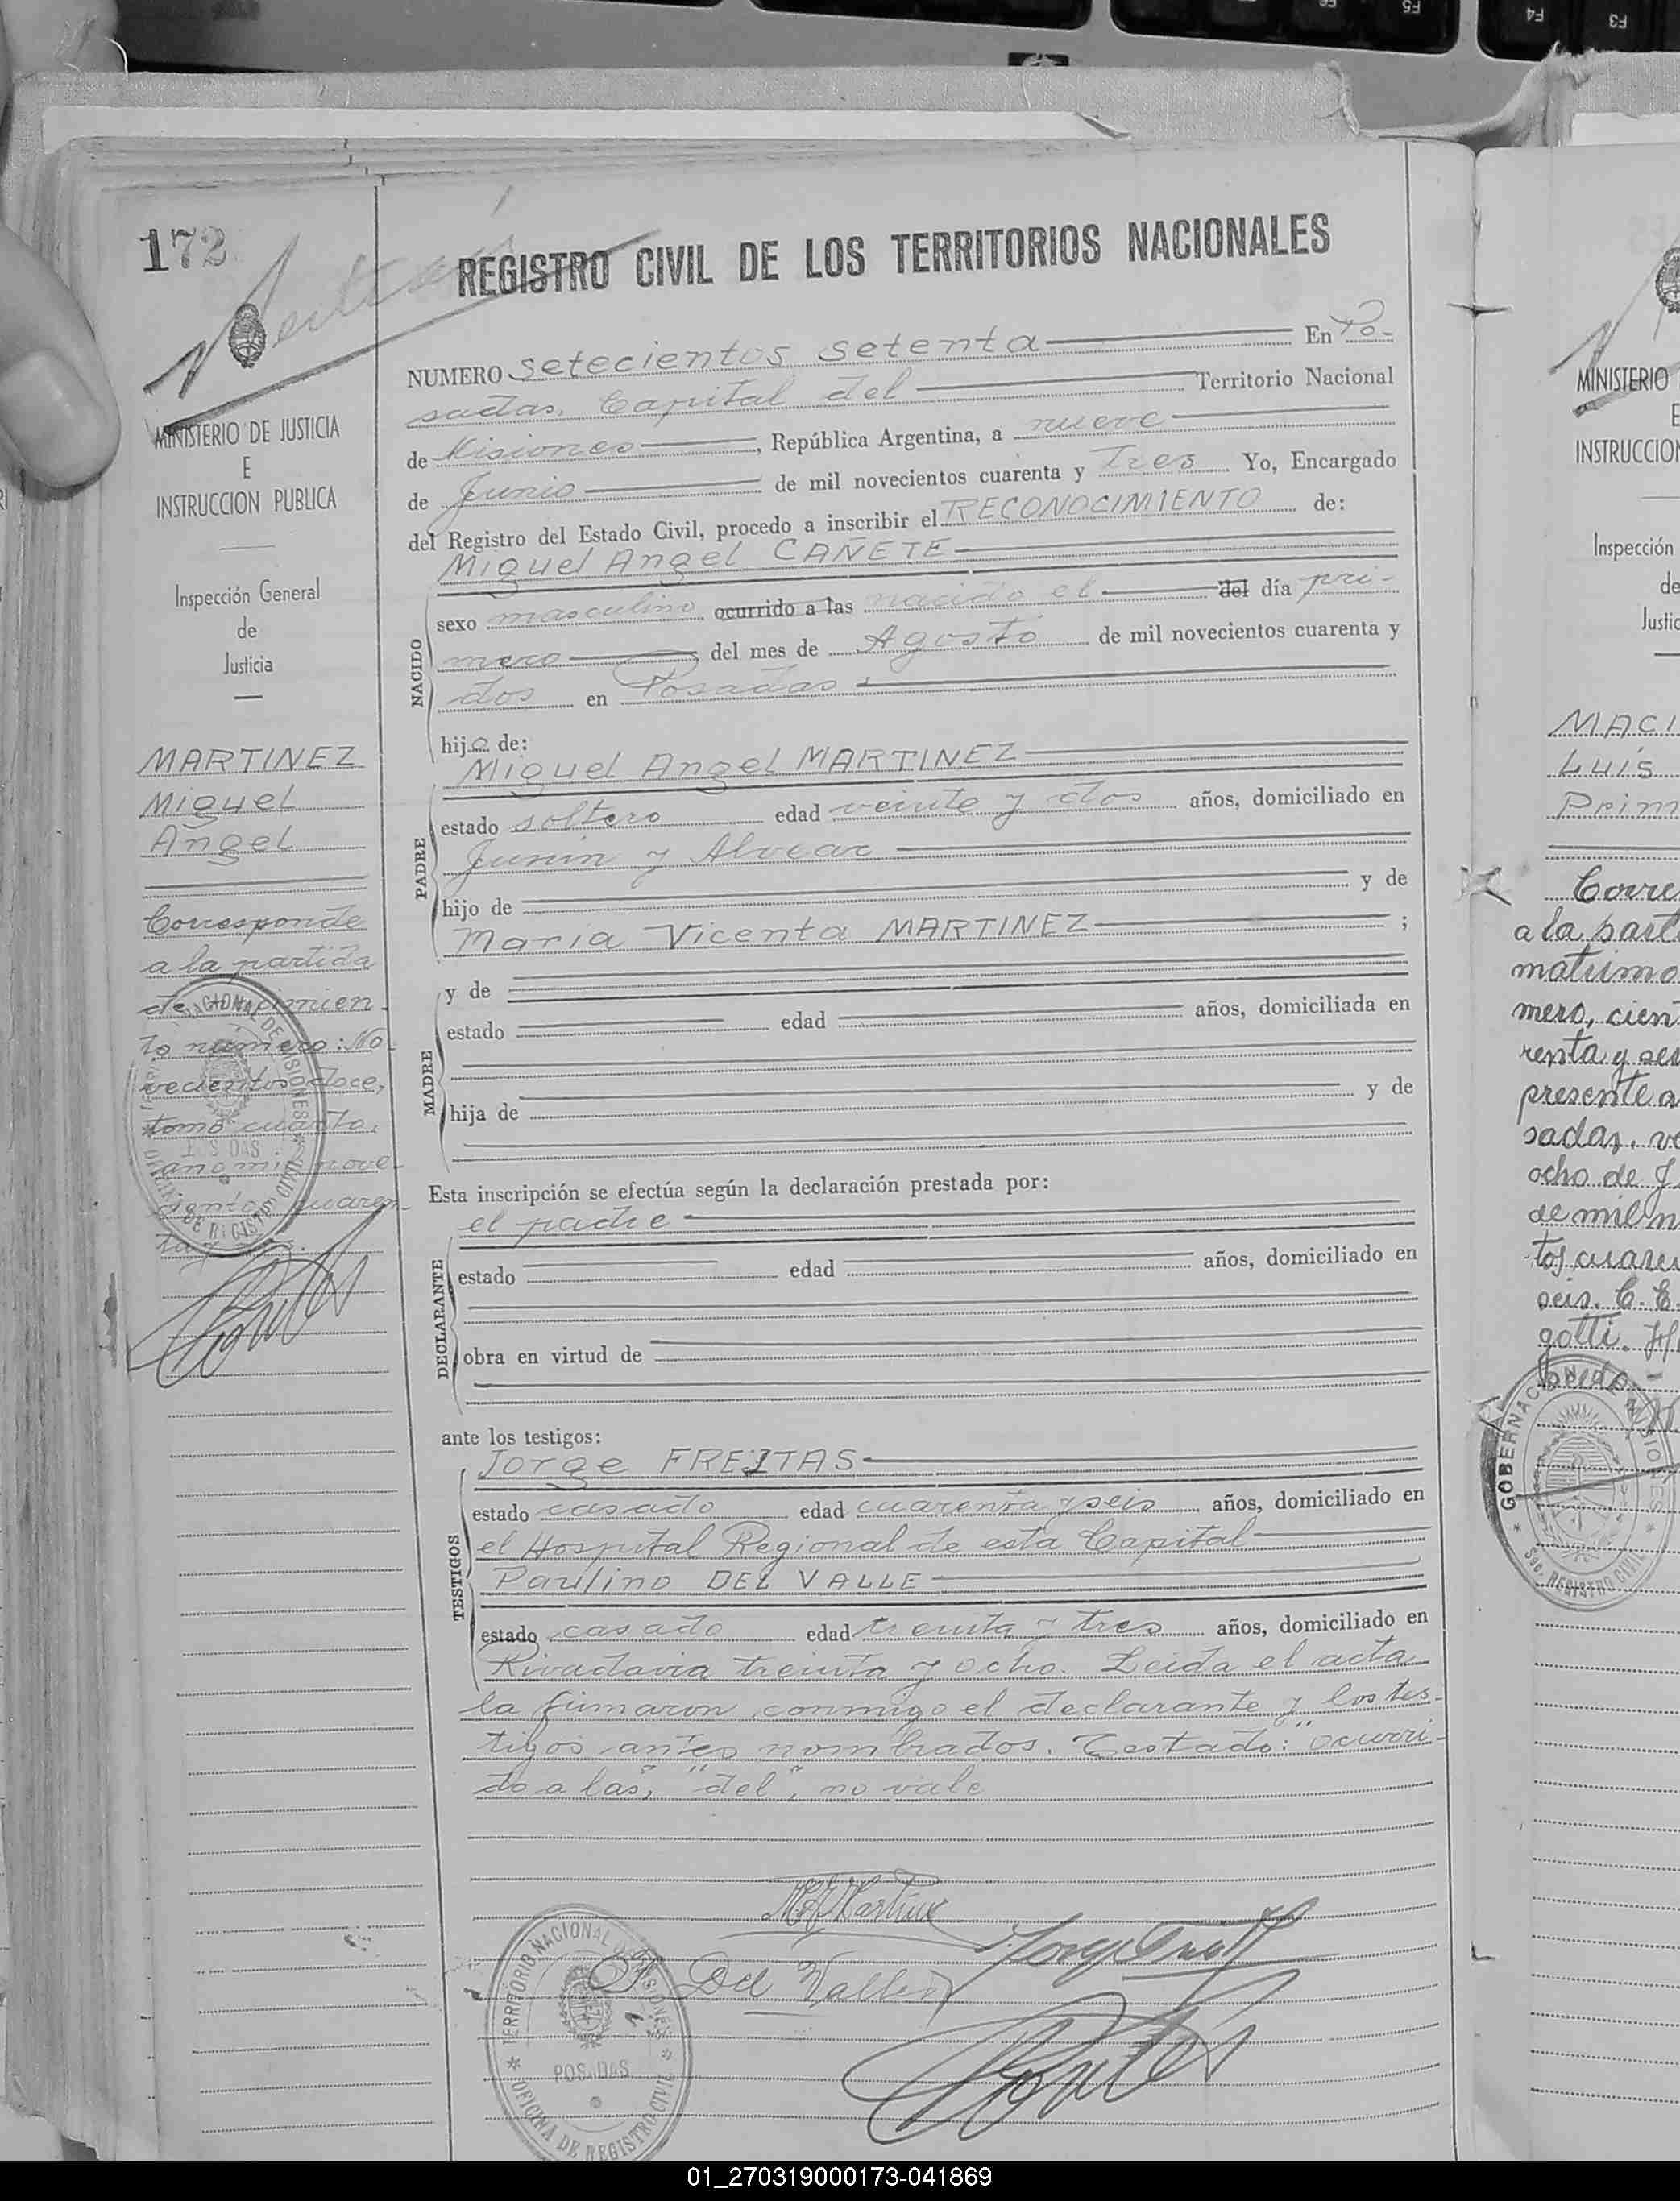 172
REGISTRO CIVIL DE LOS TERRITORIOS NACIONALES
MINISTERIO DE JUSTICIA
E
INSTRUCCION PUBLICA
Inspección General
de
Justicia
MARTINEZ
Miguel
Angel
Corresponde
a la partida
de nacimien-
to numero: No-
vecientos doce,
tomo cuarto,
año mil nove-
cientos cuaren-
NUMERO setecientos setenta En Po-
sadas, Capital del Territorio Nacional
de Misiones, República Argentina, a nueve
de Junio de mil novecientos cuarenta y Tres Yo, Encargado
del Registro del Estado Civil, procedo a inscribir el RECONOCIMIENTO de:
Miguel Angel CAÑETE
NACIDO
sexo masculino ocurrido a las nacido el del día pri-
mero del mes de Agosto de mil novecientos cuarenta y
dos en Posadas
hijo de:
Miguel Angel MARTINEZ
PADRE
estado soltero edad veinte y dos años, domiciliado en
Junín y Alvear
hijo de y de
Maria Vicenta MARTINEZ ;
y de
MADRE
estado edad años, domiciliada en
hija de y de
Esta inscripción se efectúa según la declaración prestada por:
el padre
DECLARANTE
estado edad años, domiciliado en
obra en virtud de
ante los testigos:
Jorge FREITAS
TESTIGOS
estado casado edad cuarenta y seis años, domiciliado en
el Hospital Regional de esta Capital
Paulino DEL VALLE
estado casado edad treinta y tres años, domiciliado en
Rivadavia treinta y ocho. Leida el acta
la firmaron conmigo el declarante y los tes-
tigos antes nombrados. Testado: "ocurri-
do a las", "del", no vale
M A Martinez
P. Del Valle
TERRITORIO NACIONAL DE MISIONES
POSADAS
OFICINA DE REGISTRO CIVIL
MINISTERIO
E
INSTRUCCION
Inspección
de
Justic
MACI
Luís
Prim
Corre
a la parti
matrimo
mero, cien
renta y sei
presente a
sadas, ve
ocho de J
de mil n
tos cuare
seis. C. E.
gotti. H
GOBERNACION DE MISIONES
Sec. REGISTRO CIVIL
01_270319000173-041869